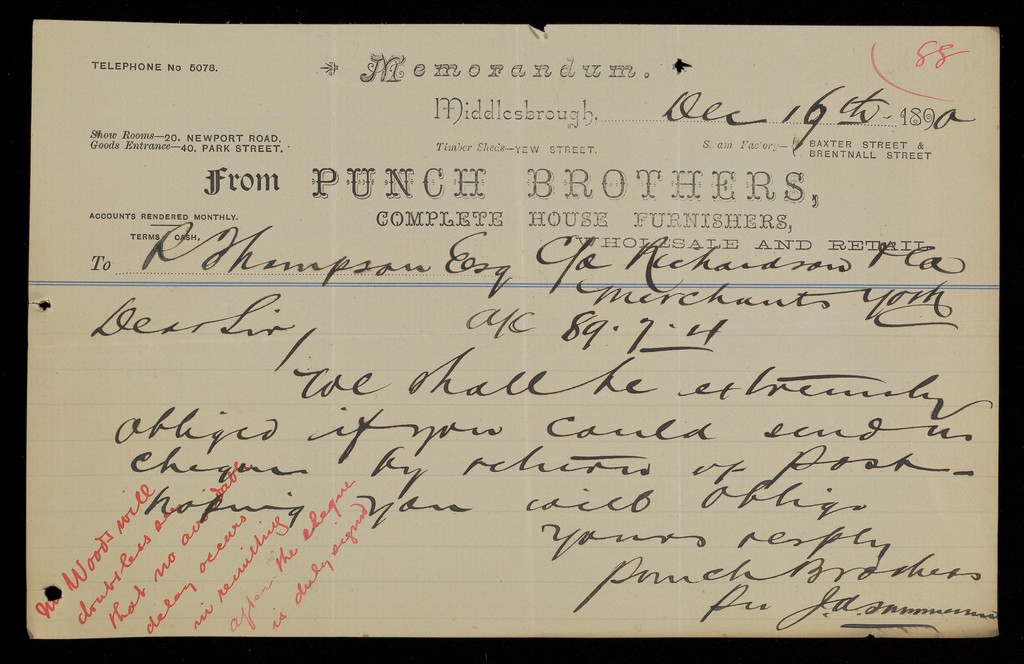 88
TELEPHONE No 5078.
Memorandum.
Middlesbrough, Dec 19th 1890
Show Rooms—20. NEWPORT ROAD.
Goods Entrance—40. PARK STREET.
Timber Sheds—YEW STREET.
Steam Factory— BAXTER STREET &
BRENTNALL STREET
From PUNCH BROTHERS,
COMPLETE HOUSE FURNISHERS,
WHOLESALE AND RETAIL
ACCOUNTS RENDERED MONTHLY.
TERMS CASH,
To R Thompson Esq C/o Richardson & Co
Merchants York
Dear Sir, a/c 89.7.4
We shall be extremely
obliged if you could send us
cheque by return of post—
hoping you will oblige
Yours resply
Punch Brothers
Per J.A.
Mr Woods will
doubtless see
that no avoidable
delay occurs
in remitting
after the cheque
is duly signed